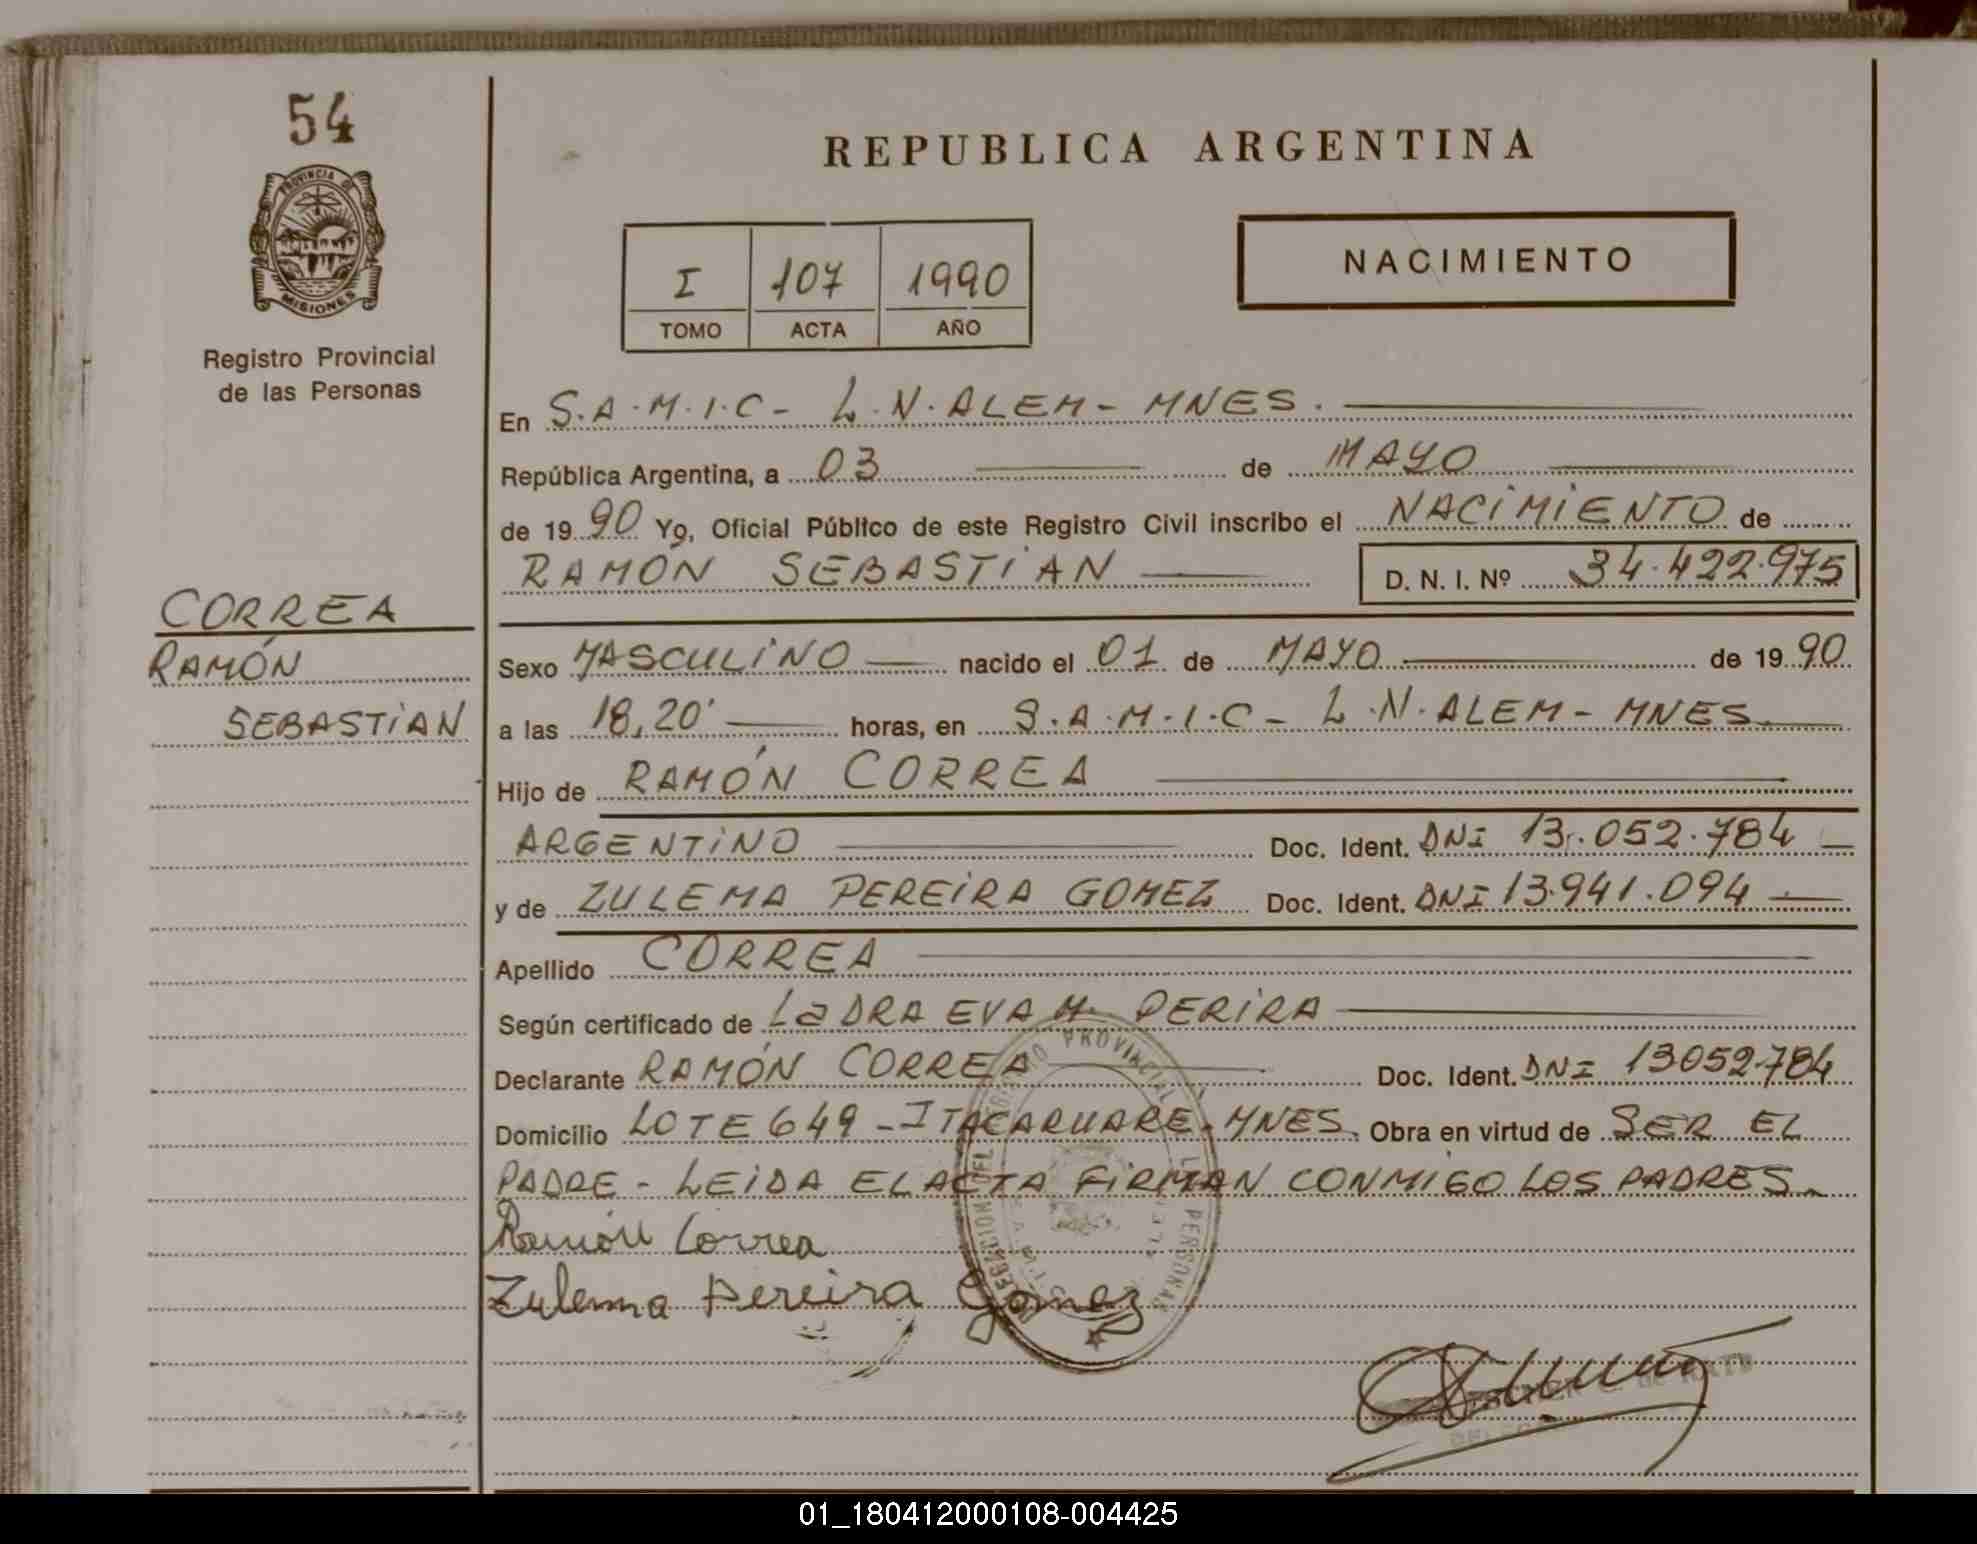 54
PROVINCIA DE
MISIONES
Registro Provincial
de las Personas
REPUBLICA ARGENTINA
I 107 1990
TOMO ACTA AÑO
NACIMIENTO
En S.A.M.I.C- L.N.ALEM- MNES.
República Argentina, a 03 de MAYO
de 1990 Yo, Oficial Público de este Registro Civil inscribo el NACIMIENTO de
RAMÓN SEBASTIAN D. N. I. Nº 34.422.975
CORREA
RAMÓN
SEBASTIAN
Sexo MASCULINO nacido el 01 de MAYO de 1990
a las 18,20' horas, en S.A.M.I.C- L.N.ALEM- MNES.
Hijo de RAMÓN CORREA
ARGENTINO Doc. Ident. DNI 13.052.784
y de ZULEMA PEREIRA GOMEZ Doc. Ident. DNI 13.941.094
Apellido CORREA
Según certificado de La DRA EVA M. PERIRA
Declarante RAMÓN CORREA Doc. Ident. DNI 13052784
Domicilio LOTE 649 - ITACARUARE - MNES. Obra en virtud de SER EL
PADRE - LEIDA EL ACTA FIRMAN CONMIGO LOS PADRES.
Ramón Correa
Zulema Pereira Gomez
PROVINCIAL
PERSONAS
01_180412000108-004425